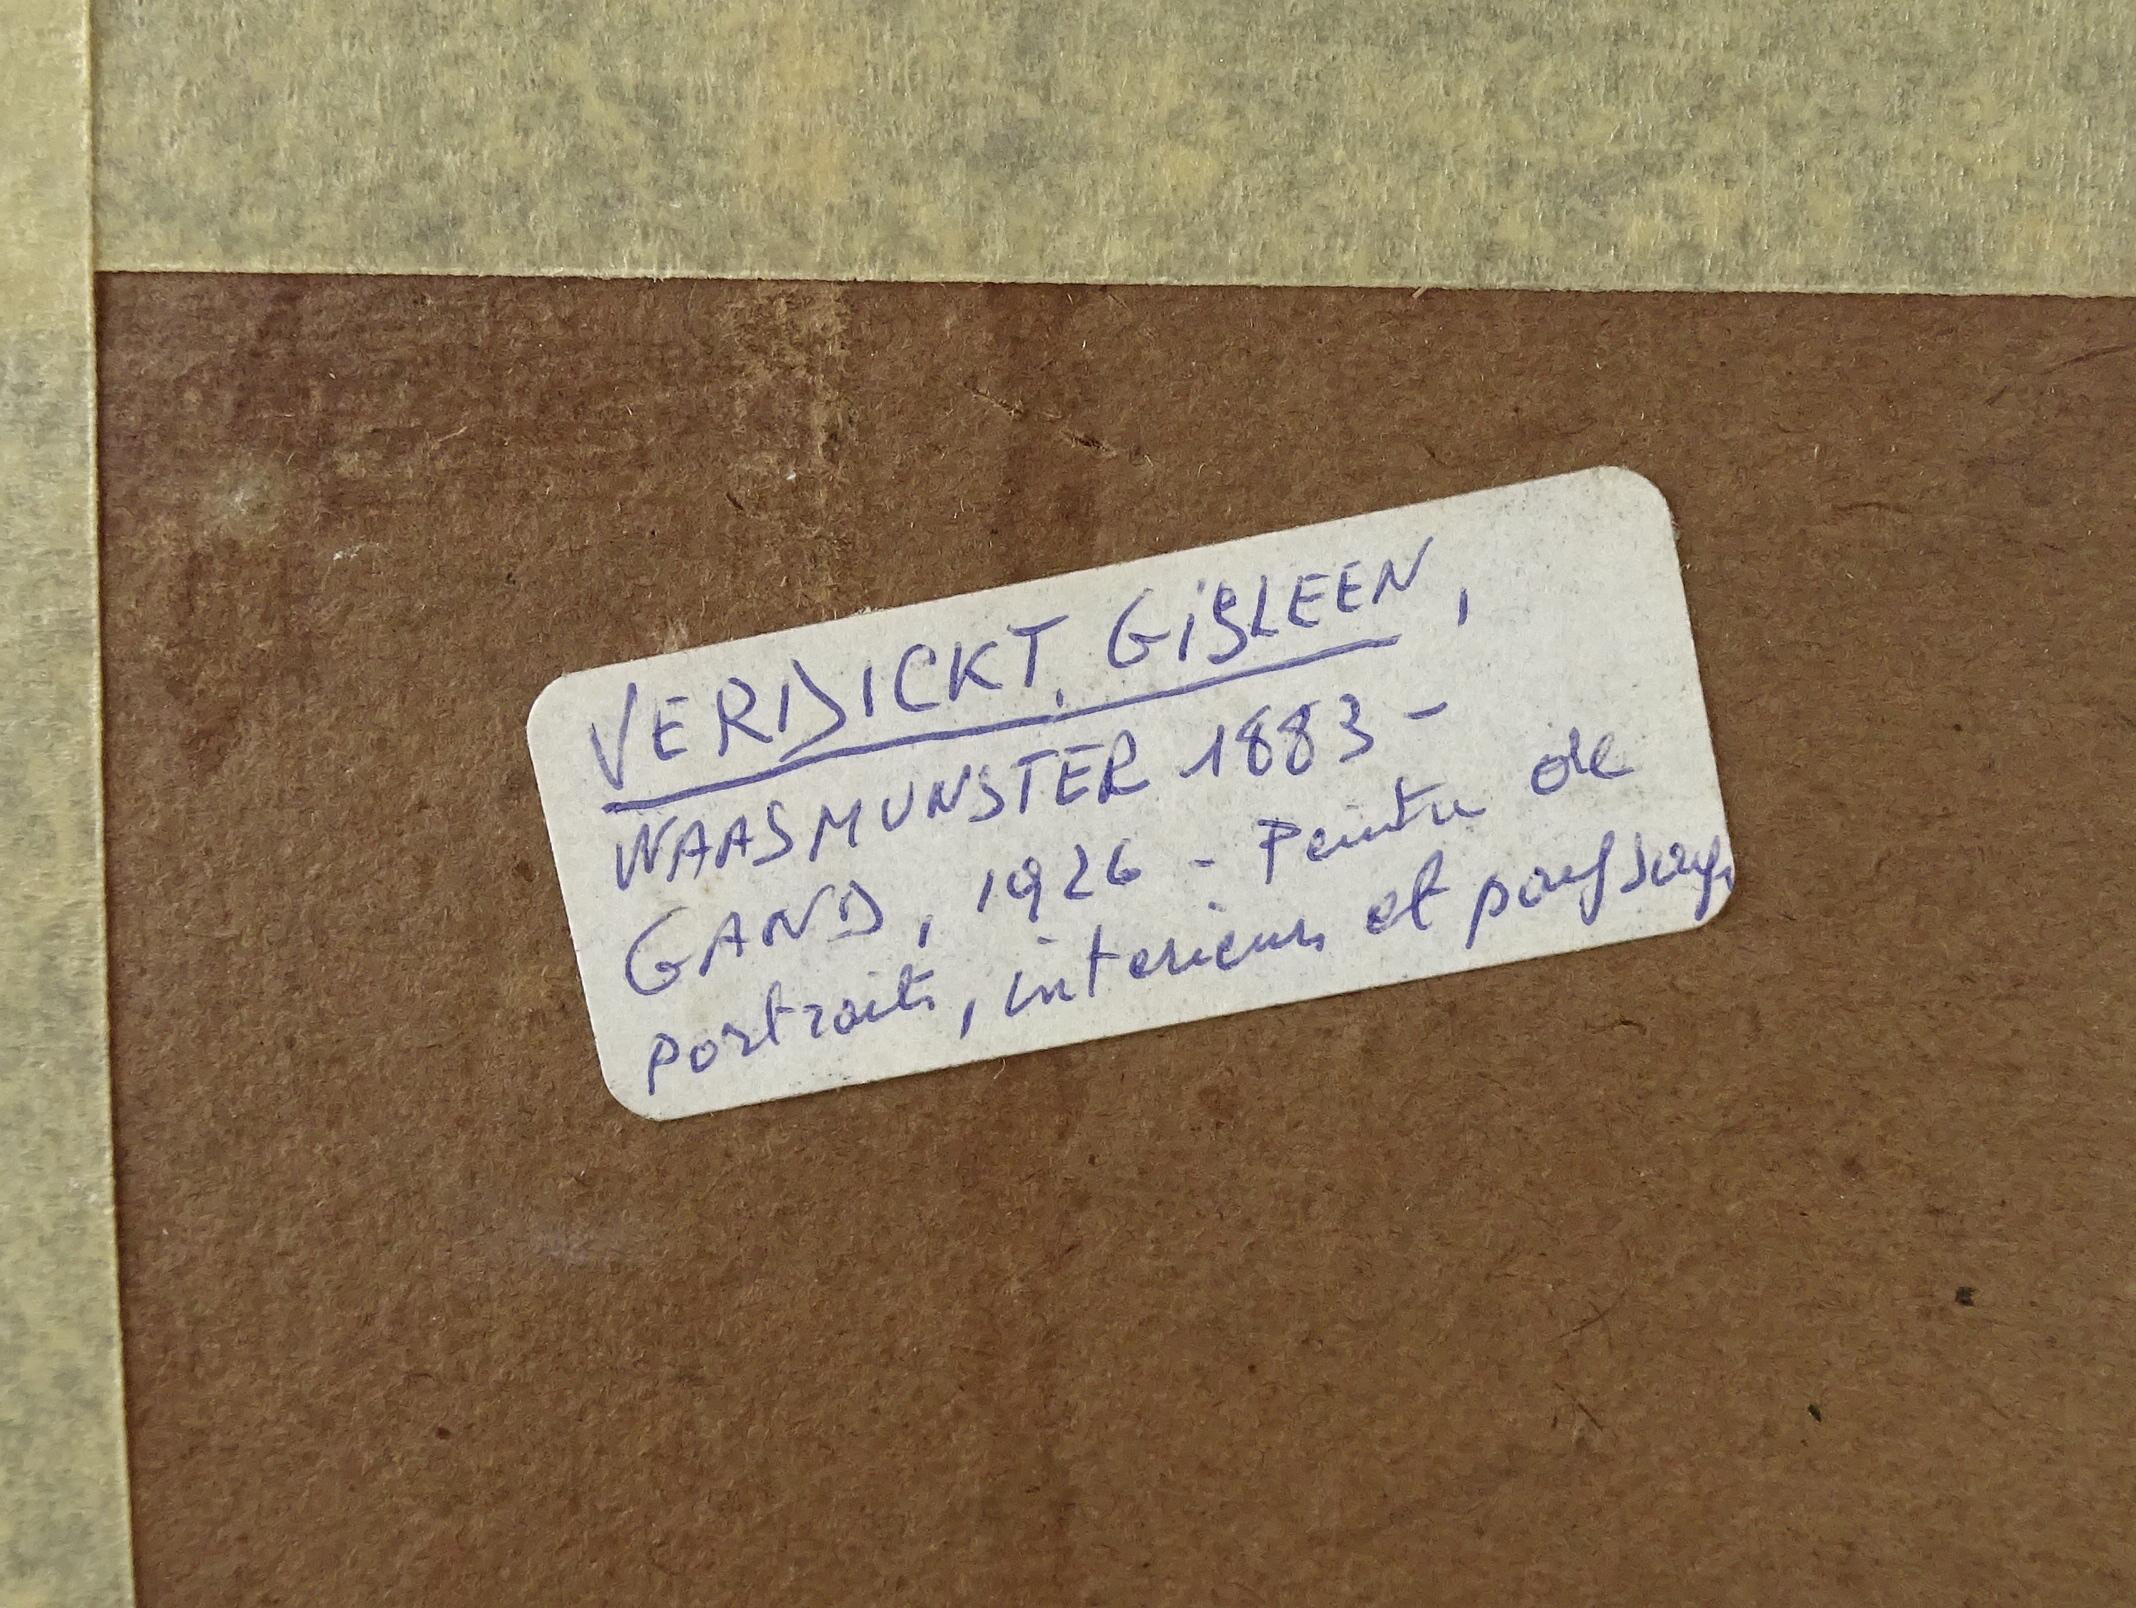 VERDICKT. GISLEEN,
WAASMUNSTER 1883 -
GAND, 1926 - Peintre de
portraits, interieurs et paysages